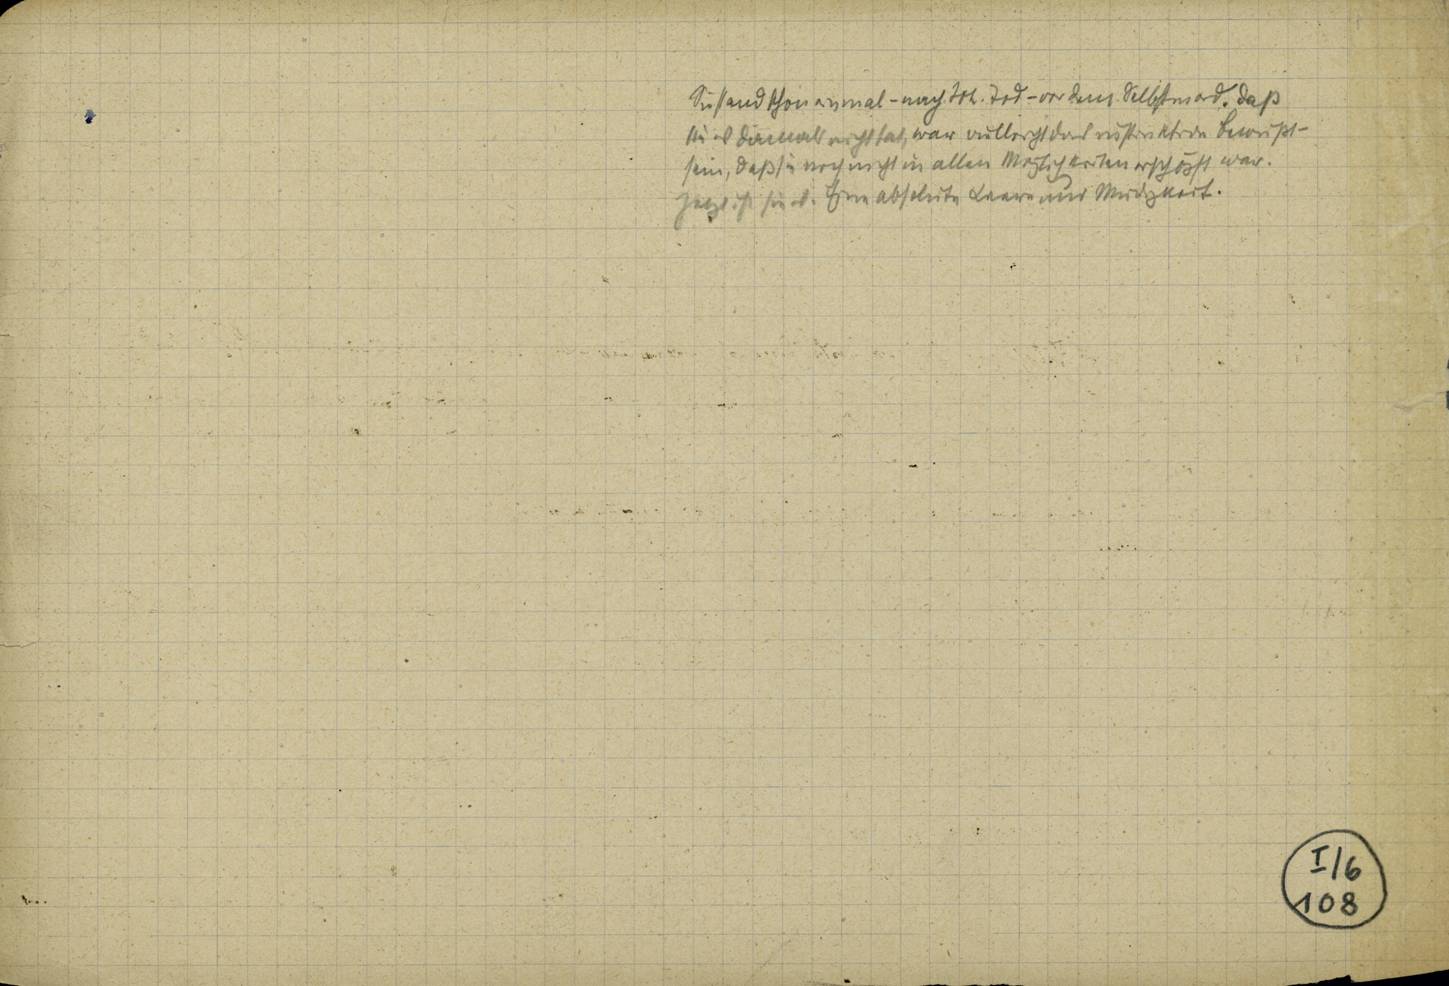 Sie stand schon einmal – nach Joh. Tod – vor dem Selbstmord. Daß
sie es damals nicht tat, war vielleicht das instinktive Bewußt-
sein, daß sie noch nicht in allen Möglichkeiten erschöpft war.
Jetzt ist sie es. Eine absolute Leere und Müdigkeit.
I/6
108